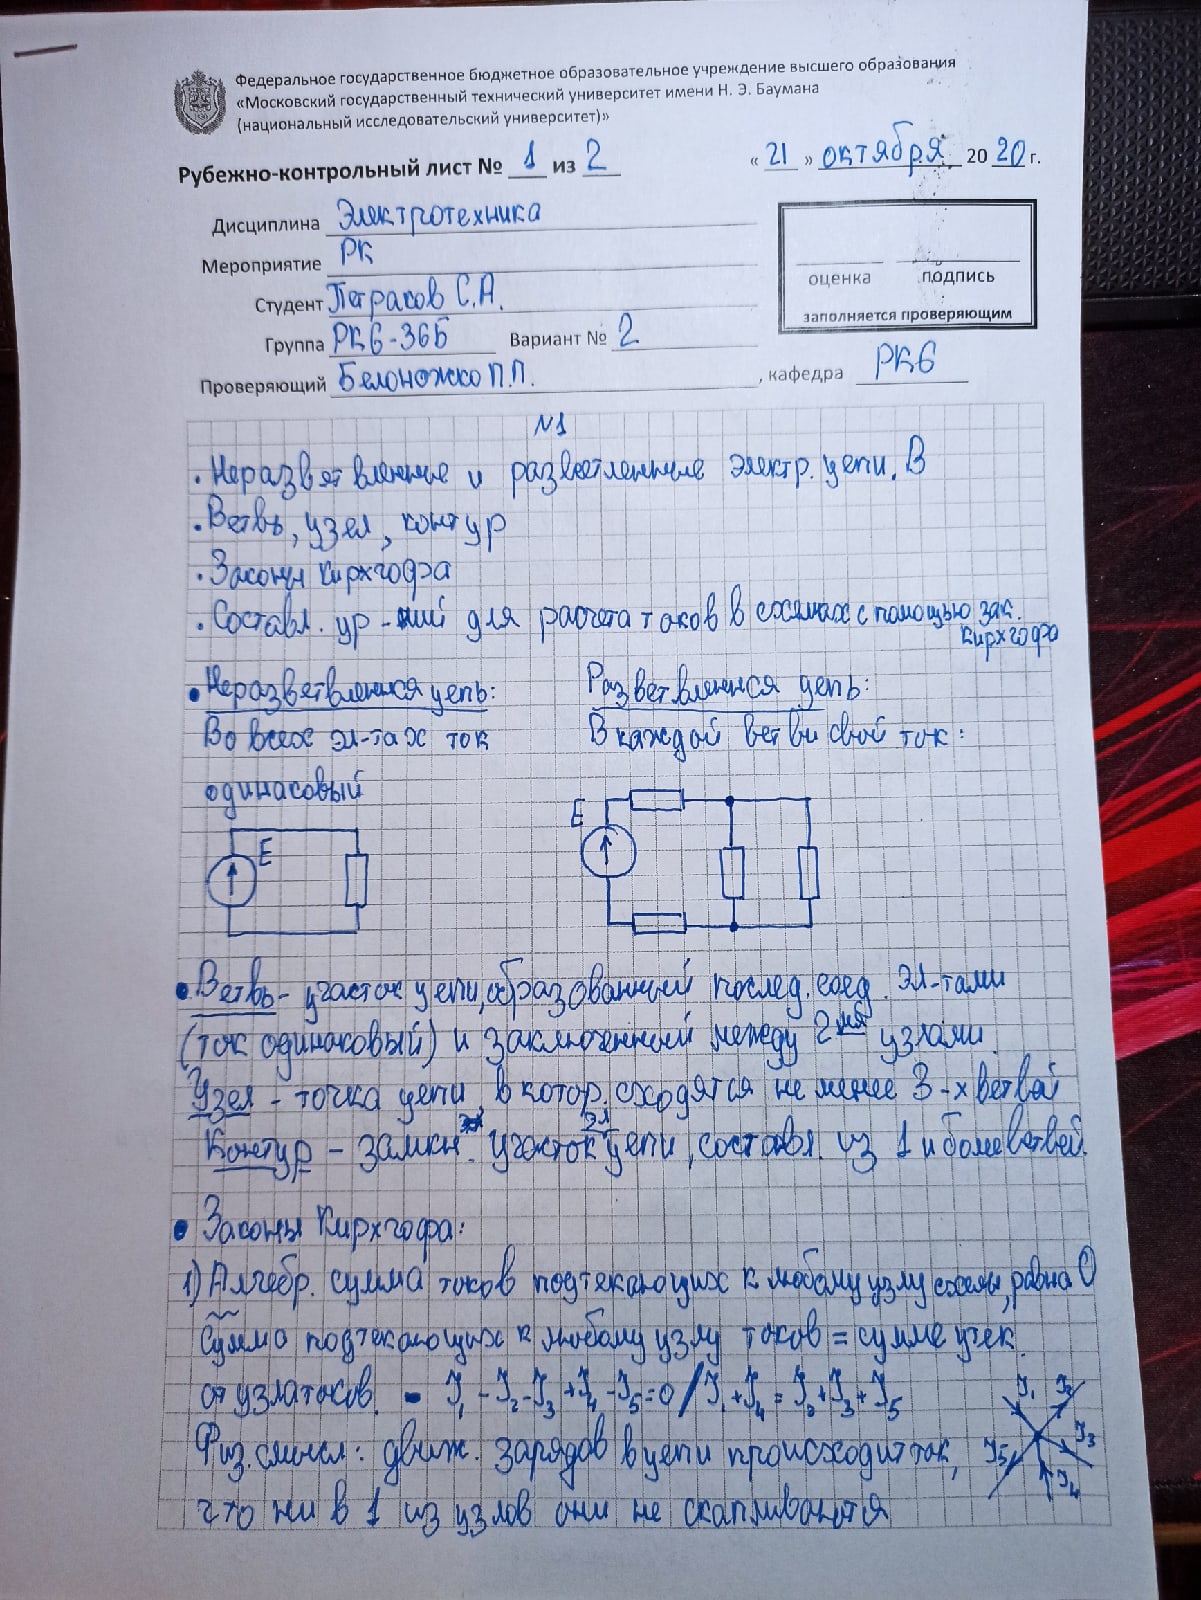 Федеральное государственное бюджетное образовательное учреждение высшего образования
«Московский государственный технический университет имени Н. Э. Баумана
(национальный исследовательский университет)»
Рубежно-контрольный лист № 1 из 2 « 21 » октября 20 20 г.
Дисциплина Электротехника
Мероприятие РК
Студент Петраков С.А.
Группа РК6-36Б Вариант № 2
Проверяющий Белоножко П.П. , кафедра РК6
оценка подпись
заполняется проверяющим
N1
· Неразветвленные и разветленные электр. цепи. В
· Ветвь, узел, контур
· Законы Кирхгофа
· Составл. ур-ний для расчета токов в схемах с помощью зак.
Кирхгофа
• Неразветвленная цепь: Разветвленная цепь:
Во всех эл-тах ток В каждой ветви свой ток:
одинаковый
E E
• Ветвь - участок цепи, образованный послед. соед. эл-тами
(ток одинаковый) и заключенный между 2мя узлами.
Узел - точка цепи, в котор. сходятся не менее 3-х ветвей
Контур - замкн. участок эл цепи, составл. из 1 и более ветвей.
• Законы Кирхгофа:
1) Алгебр. сумма токов подтекающих к любому узлу схемы, равна 0
~~
Сумма подтекающих к любому узлу токов = сумме утек.
от узла токов. - I₁ - I₂ - I₃ + I₄ - I₅ = 0 / I₁ + I₄ = I₂ + I₃ + I₅
I₁ I₂ I₃ I₄ I₅
Физ. смысл: движ. зарядов в цепи происходит так,
что ни в 1 из узлов они не скапливаются